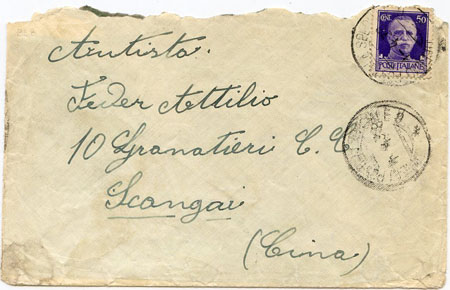 CENT. 50
POSTE ITALIANE
Autista.
Feder Attilio
10 Granatieri C. C
Scangai
(Cina)